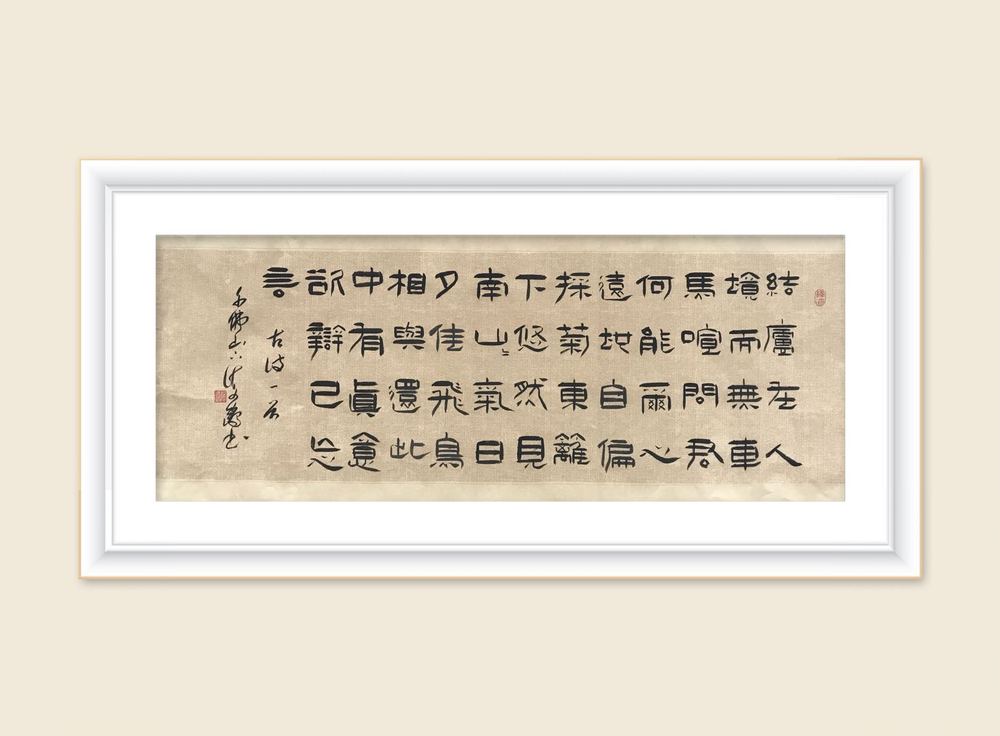 結廬在人
境而無車
馬喧問君
何能爾心
遠地自偏
採菊東籬
下悠然見
南山〻氣日
夕佳飛鳥
相與還此
中有眞意
欲辯已忘
言
古詩一首
千佛山下 書